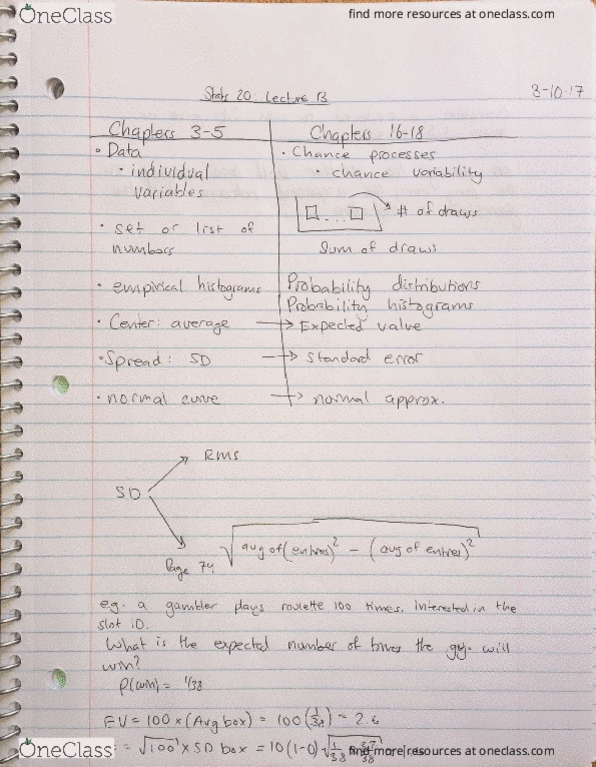 OneClass find more resources at oneclass.com
Stats 20: Lecture 13 3-10-17
Chapters 3-5 Chapters 16-18
• Data • Chance processes
• individual • chance variability
variables
□...□ # of draws
• set or list of
numbers Sum of draws
• empirical histograms Probability distributions
Probability histograms
• Center: average → Expected value
• Spread: SD → Standard error
• normal curve → normal approx.
RMS
SD
Page 74 √ avg of (entries)² - (avg of entries)²
e.g. a gambler plays roulette 100 times. Interested in the
slot
What is the expected number of times the guy will
win?
P(win) = 1/38
EV = 100 × (Avg box) = 100 (1/38) = 2.6
OneClass = √100 × SD box = 10 (1-0) √ 1/38 37/38
find more resources at oneclass.com